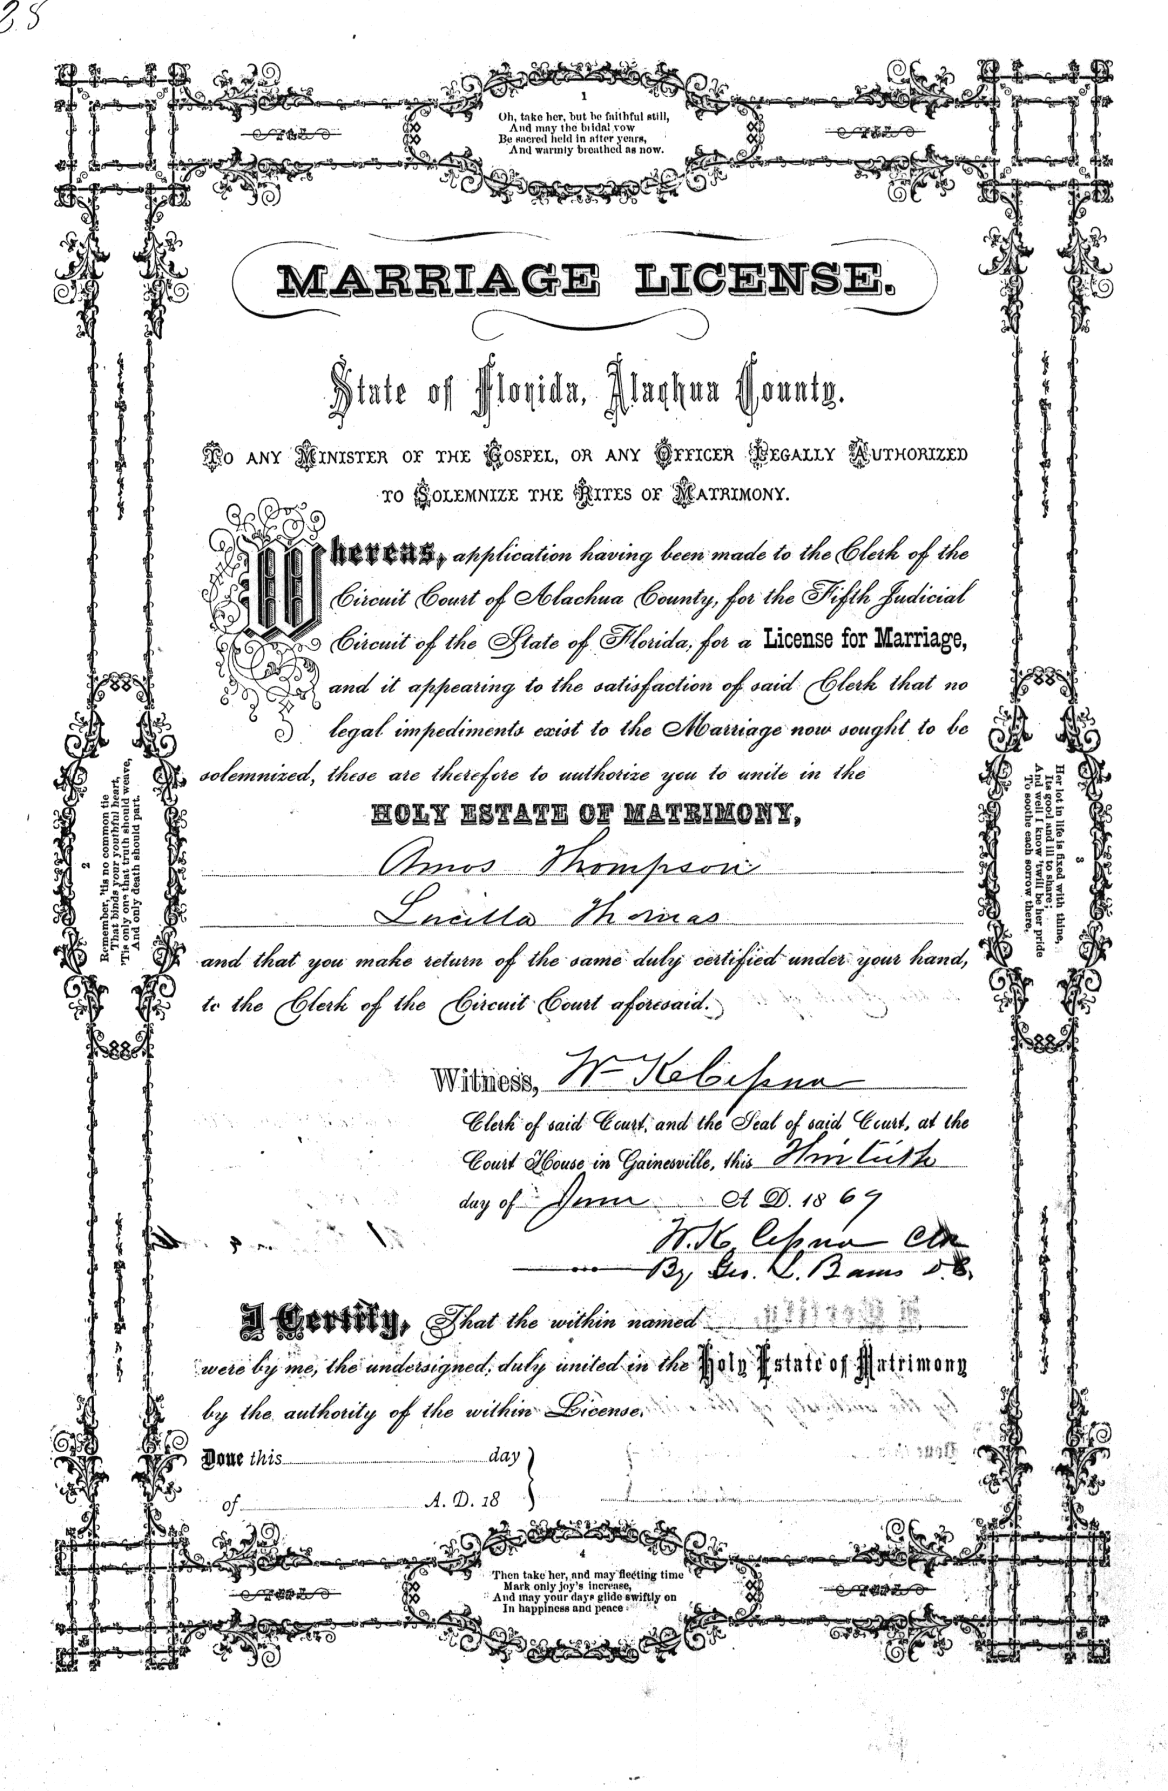 28
1
Oh, take her, but be faithful still,
And may the bridal vow
Be sacred held in after years,
And warmly breathed as now.
MARRIAGE LICENSE.
State of Florida, Alachua County.
TO ANY MINISTER OF THE GOSPEL, OR ANY OFFICER LEGALLY AUTHORIZED
TO SOLEMNIZE THE RITES OF MATRIMONY.
Whereas, application having been made to the Clerk of the
Circuit Court of Alachua County, for the Fifth Judicial
Circuit of the State of Florida, for a License for Marriage,
and it appearing to the satisfaction of said Clerk that no
legal impediments exist to the Marriage now sought to be
solemnized, these are therefore to authorize you to unite in the
HOLY ESTATE OF MATRIMONY,
Amos Thompson
Lucilla Thomas
and that you make return of the same duly certified under your hand,
to the Clerk of the Circuit Court aforesaid.
2
Remember, 'tis no common tie
That binds your youthful heart,
'Tis only one that truth should weave,
And only death should part.
3
Her lot in life is fixed with thine,
Its good and ill to share;
And well I know 'twill be her pride
To soothe each sorrow there.
Witness, Wm K Cessna
Clerk of said Court, and the Seal of said Court, at the
Court House in Gainesville, this
day of June A. D. 1869
W. K. Cessna Clk
By Geo. L. Barns D.C.
I Certify, That the within named
were by me, the undersigned, duly united in the Holy Estate of Matrimony
by the authority of the within License.
Done this day
of A. D. 18
4
Then take her, and may fleeting time
Mark only joy's increase,
And may your days glide swiftly on
In happiness and peace